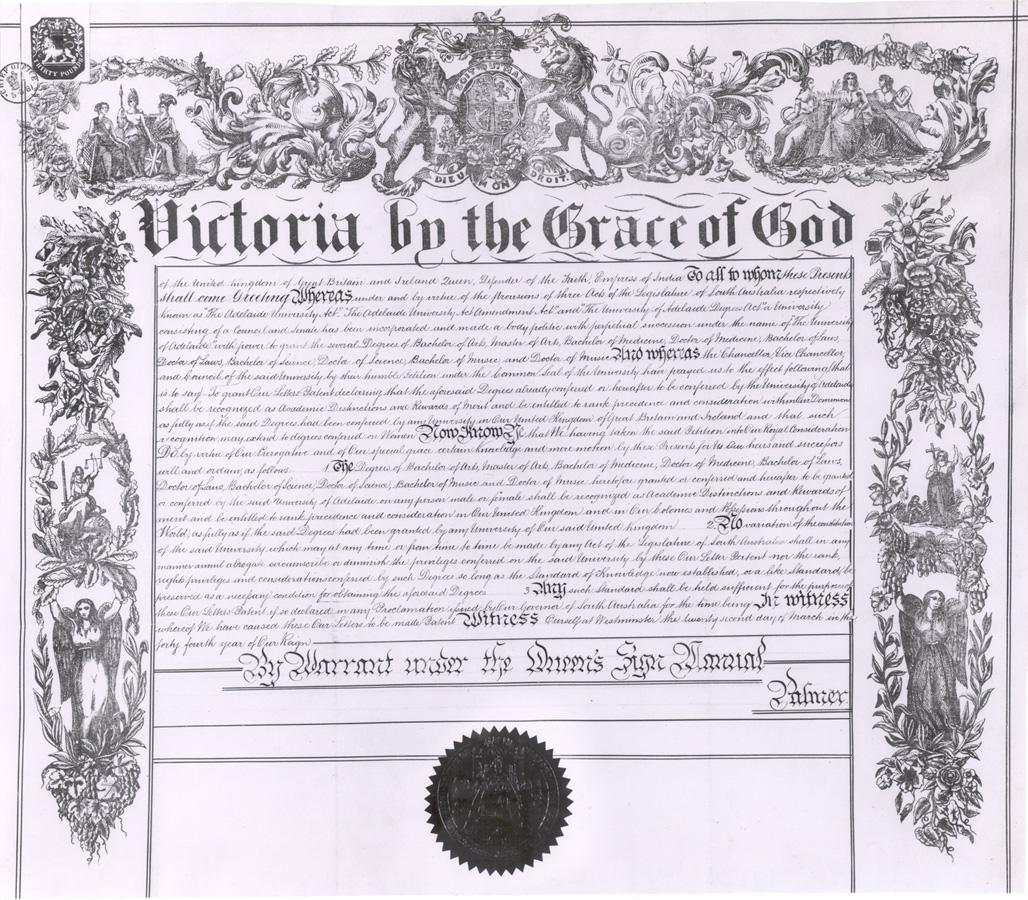 THIRTY POUNDS
DIEU ET MON DROIT.
Victoria by the Grace of God
of the United Kingdom of Great Britain and Ireland Queen, Defender of the Faith, Empress of India To all to whom these Presents
shall come Greeting Whereas under and by virtue of the provisions of three Acts of the Legislature of South Australia respectively
known as "The Adelaide University Act" "The Adelaide University Act Amendment Act" and "The University of Adelaide Degrees Act" a University
consisting of a Council and Senate has been incorporated and made a body politic with perpetual succession under the name of "The University
of Adelaide" with power to grant the several Degrees of Bachelor of Arts, Master of Arts, Bachelor of Medicine, Doctor of Medicine, Bachelor of Laws,
Doctor of Laws, Bachelor of Science, Doctor of Science, Bachelor of Music and Doctor of Music And whereas the Chancellor, Vice Chancellor,
and Council of the said University by their humble Petition under the Common Seal of the University have prayed us to the effect following (that
is to say) To grant Our Letters Patent declaring that the aforesaid Degrees already conferred or hereafter to be conferred by the University of Adelaide
shall be recognized as Academic Distinctions and Rewards of Merit and be entitled to rank precedence and consideration within Our Dominions
as fully as if the said Degrees had been conferred by any University in Our United Kingdom of Great Britain and Ireland and that such
recognition may extend to degrees conferred on Women Now Know Ye that We having taken the said Petition into Our Royal Consideration
Do by virtue of Our Prerogative and of Our special grace certain knowledge and mere motion by these Presents for Us Our heirs and successors
will and ordain as follows 1 The Degrees of Bachelor of Arts, Master of Arts, Bachelor of Medicine, Doctor of Medicine, Bachelor of Laws,
Doctor of Laws, Bachelor of Science, Doctor of Science, Bachelor of Music and Doctor of Music heretofore granted or conferred and hereafter to be granted
or conferred by the said University of Adelaide on any person male or female shall be recognized as Academic Distinctions and Rewards of
merit and be entitled to rank precedence and consideration in Our United Kingdom and in Our Colonies and Possessions throughout the
World, as fully as if the said Degrees had been granted by any University of Our said United Kingdom 2. No variation of the constitution
of the said University which may at any time or from time to time be made by any Act of the Legislature of South Australia shall in any
manner annul abrogate circumscribe or diminish the privileges conferred on the said University by these Our Letters Patent nor the rank,
rights privileges and considerations conferred by such Degrees so long as the Standard of Knowledge now established, or a like Standard, be
preserved as a necessary condition for obtaining the aforesaid Degrees 3 Any such Standard shall be held sufficient for the purpose of
these Our Letters Patent if so declared in any Proclamation issued by Our Governor of South Australia for the time being In witness
whereof We have caused these Our Letters to be made Patent Witness Ourself at Westminster the twenty second day of March in the
forty fourth year of Our Reign
By Warrant under the Queen's Sign Manual
Palmer